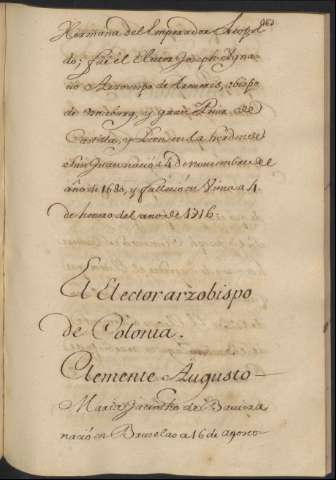 Hermana del Emperador Leopol
do; fue el Elector Joseph Ygna
cio
obispo
de y gran Prior de
Castilla, y Leon en la horden de
San Juan nació a 4 de noviembre del
año de 1680, y falleció en Viena a 4.
de henero del año de 1716.
El Elector arzobispo
de Colonia.
Clemente Augusto
Maria Jacintho de Baviera
nació en Bruselas a 16 de agosto